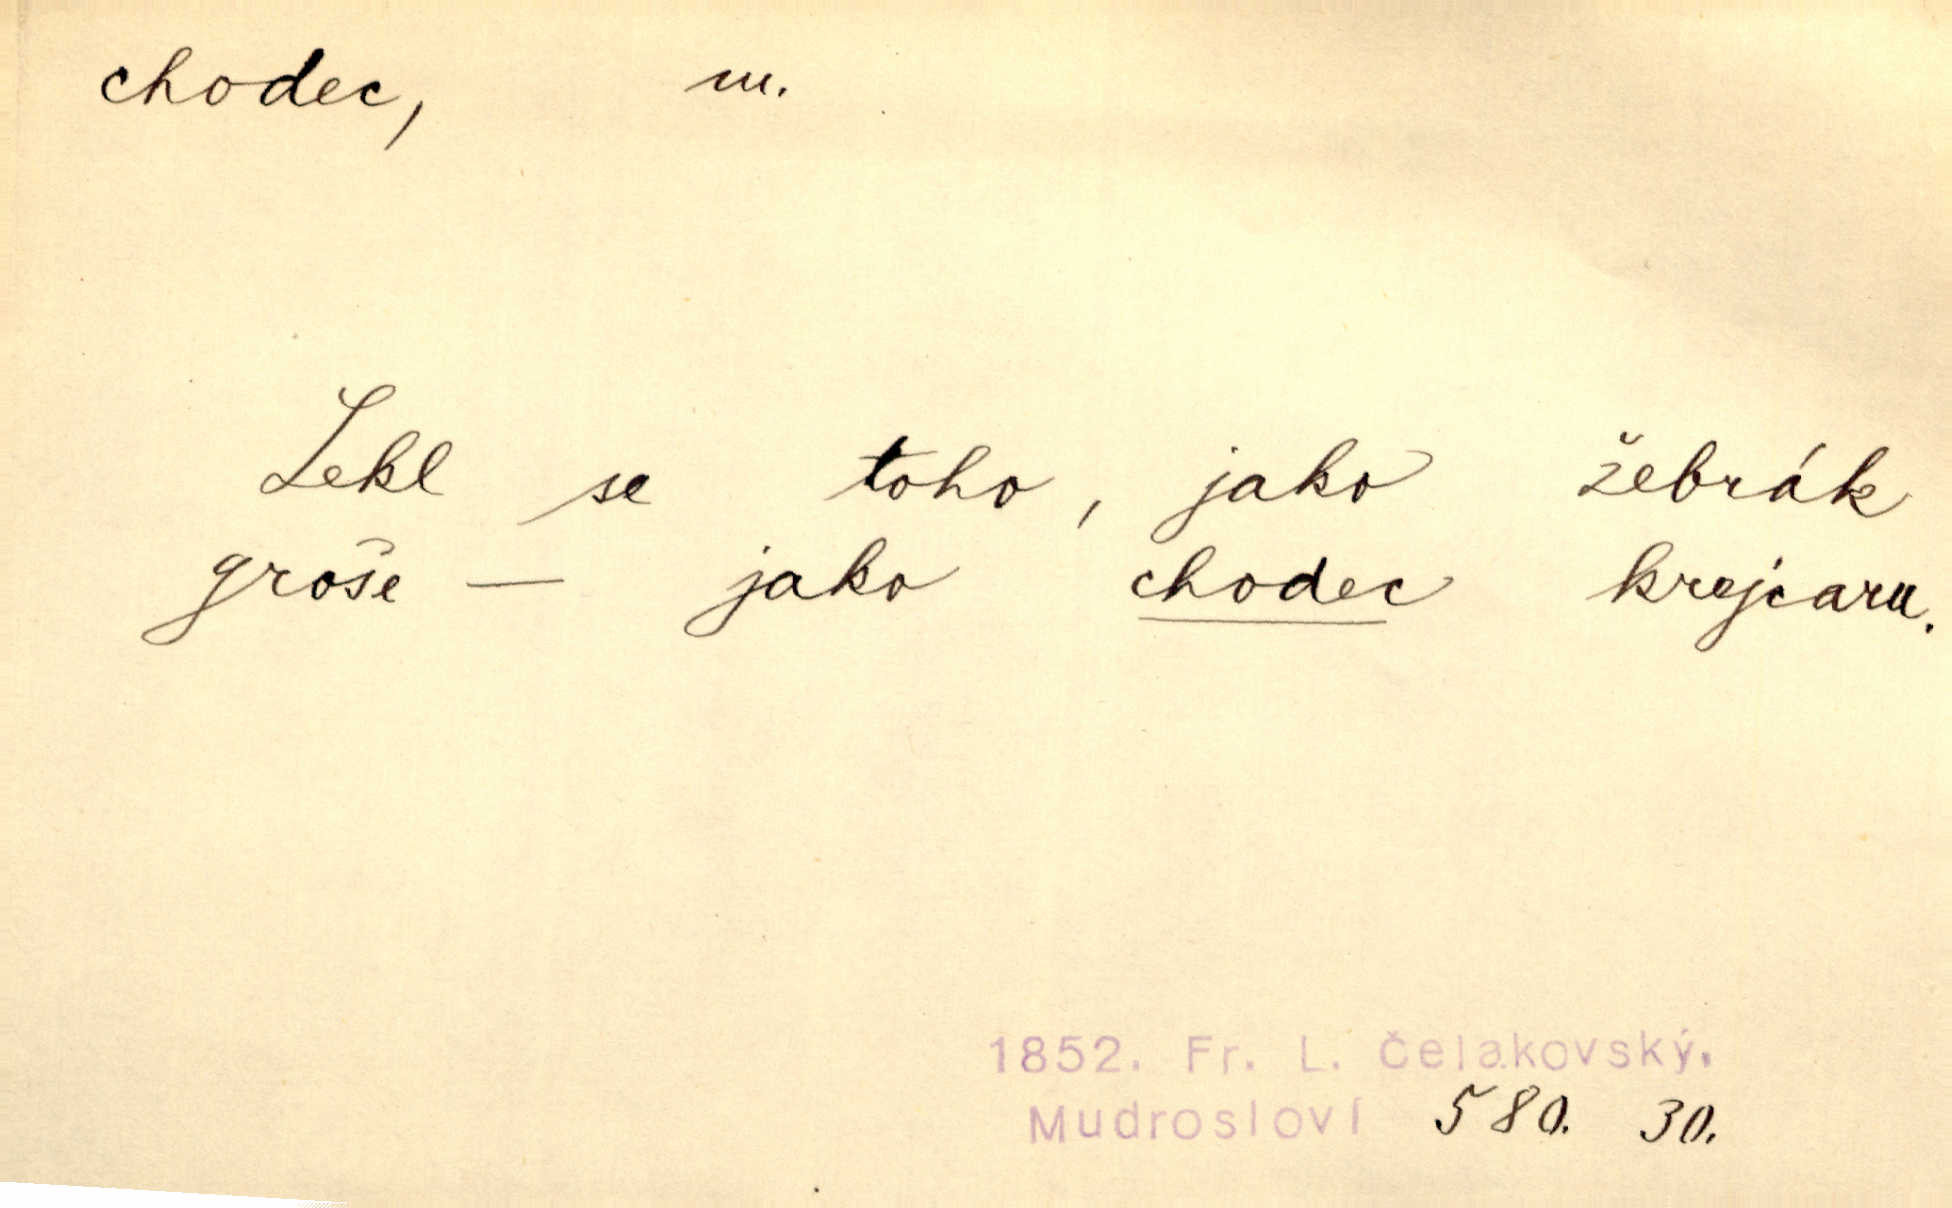 chodec, m.
Lekl se toho, jako žebrák
groše — jako chodec krejcaru.
1852. Fr. L. Čelakovský.
Mudrosloví 580. 30.